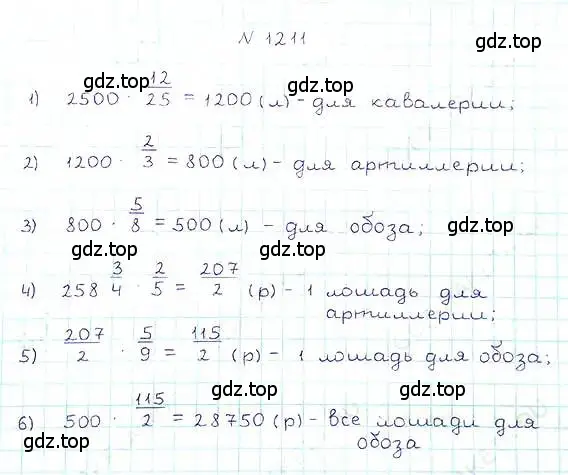 N 1211
gdz.top
gdz.top
gdz.top
1) 2500 · 12/25 = 1200 (л) - для кавалерии;
2) 1200 · 2/3 = 800 (л) - для артиллерии;
3) 800 · 5/8 = 500 (л) - для обоза;
gdz.top
gdz.top
gdz.top
4) 258 3/4 · 2/5 = 207/2 (р) - 1 лошадь для
артиллерии;
5) 207/2 · 5/9 = 115/2 (р) - 1 лошадь для обоза;
gdz.top
gdz.top
6) 500 · 115/2 = 28750 (р) - все лошади для
обоза
gdz.top
gdz.top